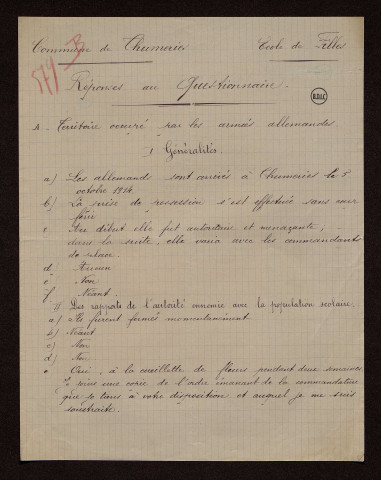 Commune de Thumeries École de Filles
574 B
Réponses au Questionnaire.
B.D.I.C
A - Territoire occupé par les armées allemandes
I Généralités.
a) Les allemands sont arrivés à Thumeries le 8
octobre 1914
b) La prise de possession s'est effectuée sans coup
férir
c Au début elle fut autoritaire et menaçante,
dans la suite, elle varia avec les commandants
de place.
d) Aucun
e) Non
f) Néant.
II) Des rapports de l'autorité ennemie avec la population scolaire
a) Ils furent fermés momentanément
b) Néant
c) Non
d) Non
e Oui, à la cueillette de fleurs pendant deux semaines
Je joins une copie de l'ordre émanant de la commandature
que je tiens à votre disposition et auquel je me suis
soustraite.